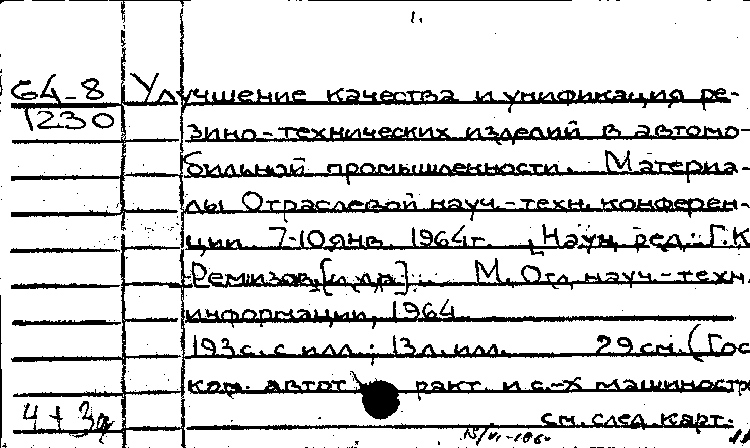 1.
64-8 Улучшение качества и унификация ре-
1230 зино-технических изделий в автомо-
бильной промышленности. Материа-
лы Отраслевой науч.-техн. конферен-
ции 7-10 янв. 1964 г. [Науч. ред.: Г.К
Ремизов, [и др.] М, Отд науч.-техн.
информации, 1964
193 с. с илл.; 13 л. илл. 29 см. (Гос
ком. автот ракт. и с.-х машиностр
4 + 3 см. след. карт.